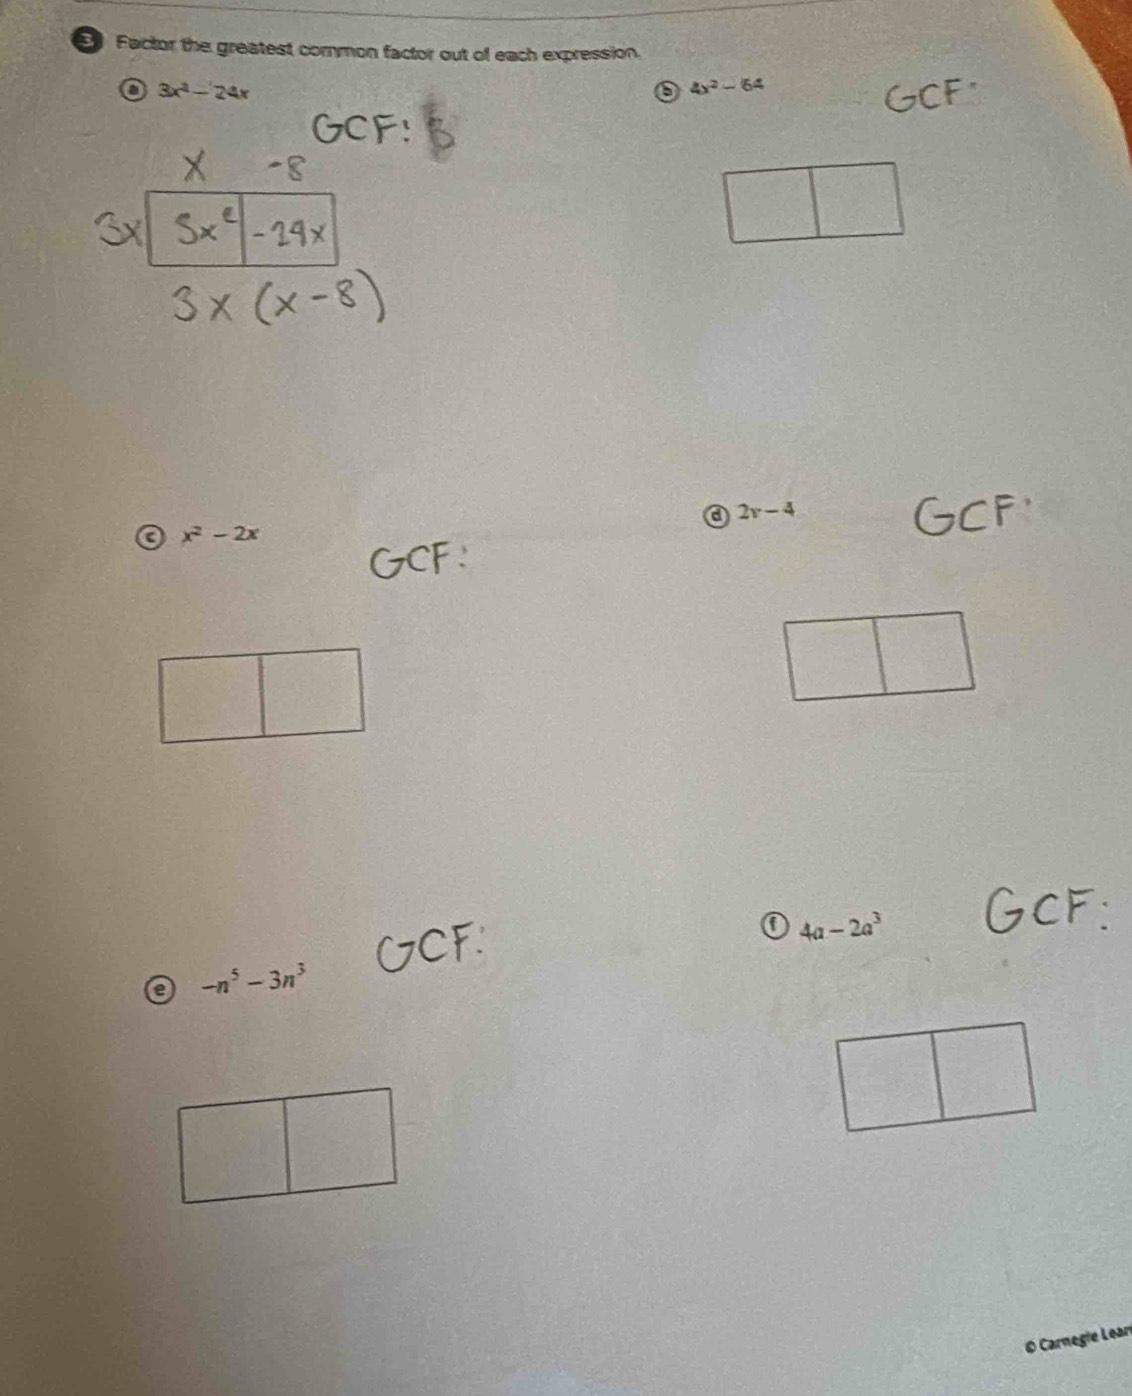 3 Factor the greatest common factor out of each expression.
a 3x² – 24x
GCF:
x -8
3x 3x² -24x
3x (x-8)
b 4x² – 64
GCF:
c x² – 2x
GCF:
d 2v – 4
GCF:
e –n⁵ – 3n³
GCF:
f 4a – 2a³
GCF:
© Carnegie Lear